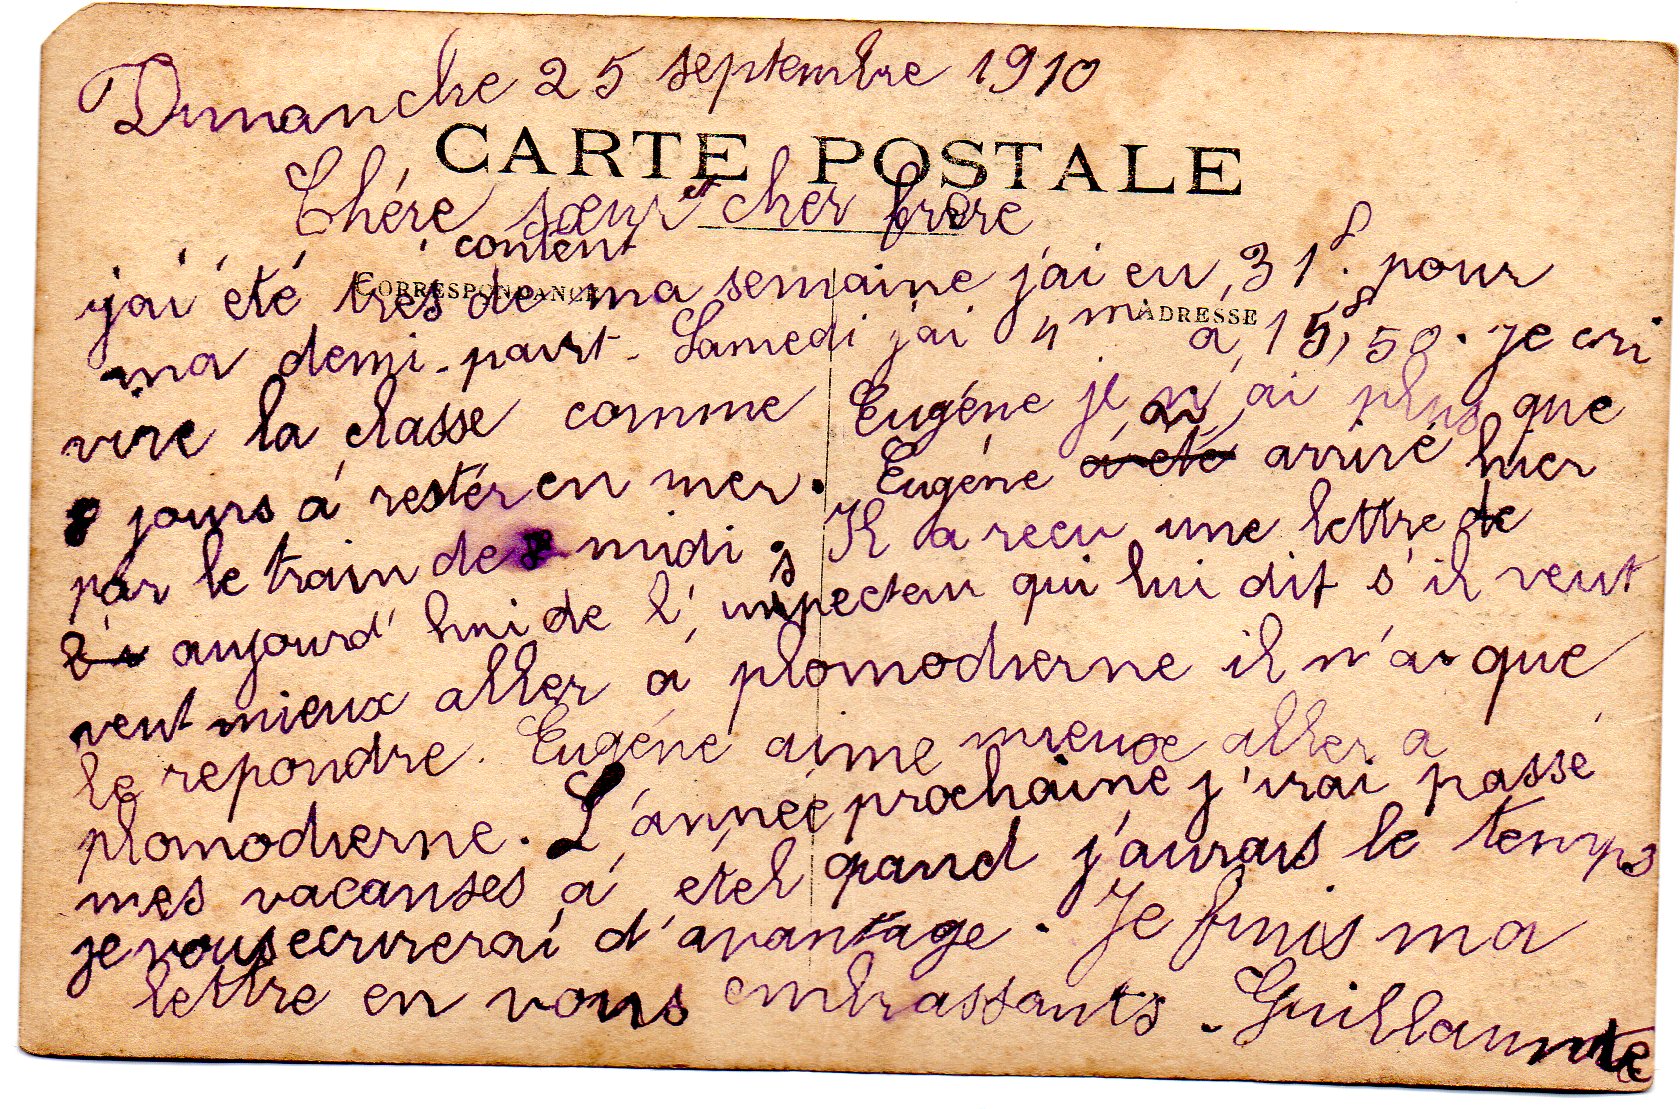 Dimanche 25 septembre 1910
CARTE POSTALE
Chére sœur et cher frère
content
CORRESPONDANCE
ADRESSE
j'ai été très de ma semaine j'ai eu 31f. pour
ma demi-part. Samedi j'ai 4 m à 15f,50. je cri
vire la classe comme Eugéne je n'ai plus que
8 jours à restér en mer. Eugéne a été arrivé hier
par le train de 8 midi. Il a recu une lettre de
aujourd'hui de l'inspecteur qui lui dit s'il veut
veut mieux aller à plomodierne il n'a que
le repondre. Eugéne aime mieux aller a
plomodierne. L'année prochaine j'irai passé
mes vacanses à etel quand j'aurais le temps
je vous ecrirerai d'avantage. Je finis ma
lettre en vous embrassants. Guillaume